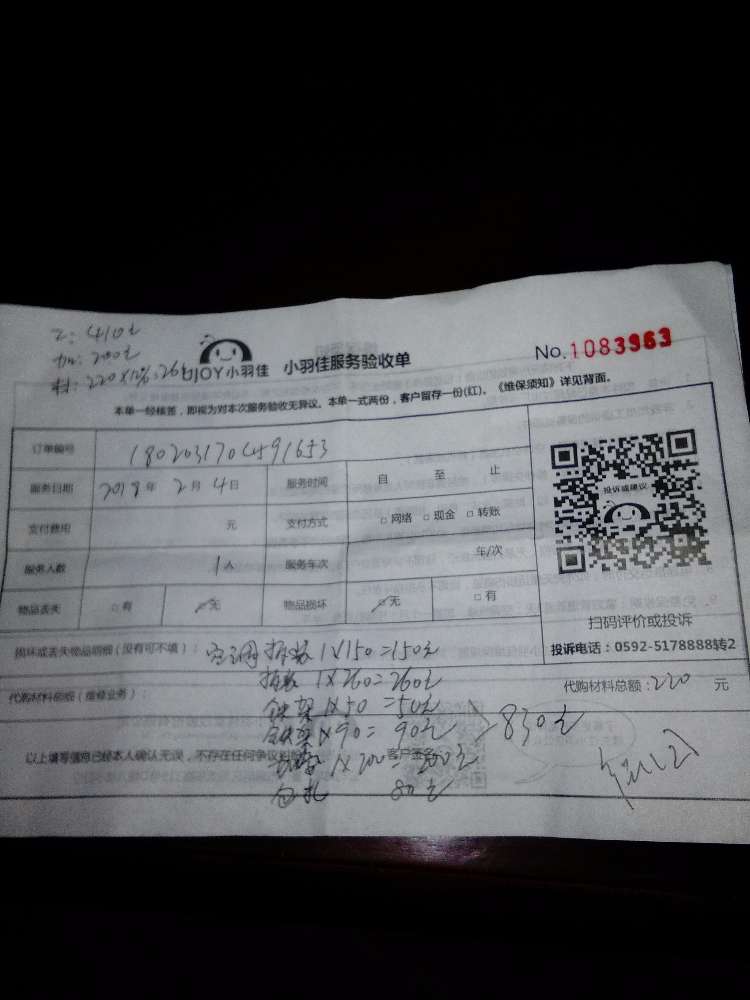 工：410元
加：200元
材：220×12%=26
QJOY小羽佳 小羽佳服务验收单 No.1083963
本单一经核签，即视为对本次服务验收无异议。本单一式两份，客户留存一份(红)。《维保须知》详见背面。
订单编号 1802031704591653
服务日期 2018年 2月 4日 服务时间 自 至 止
支付费用 元 支付方式 □网络 □现金 □转账
服务人数 1人 服务车次 车/次
物品丢失 □有 □无 物品损坏 □无 □有
投诉或建议
扫码评价或投诉
投诉电话：0592-5178888转2
损坏或丢失物品明细（没有可不填）： 空调拆装 1×150=150元
拆装 1×260=260元
代购材料明细（维修业务）： 代购材料总额：220 元
铁架 1×50=50元
铁架 1×90=90元 830元
以上填写信息已经本人确认无误，不存在任何争议 客户签名
1×200=200元
80元